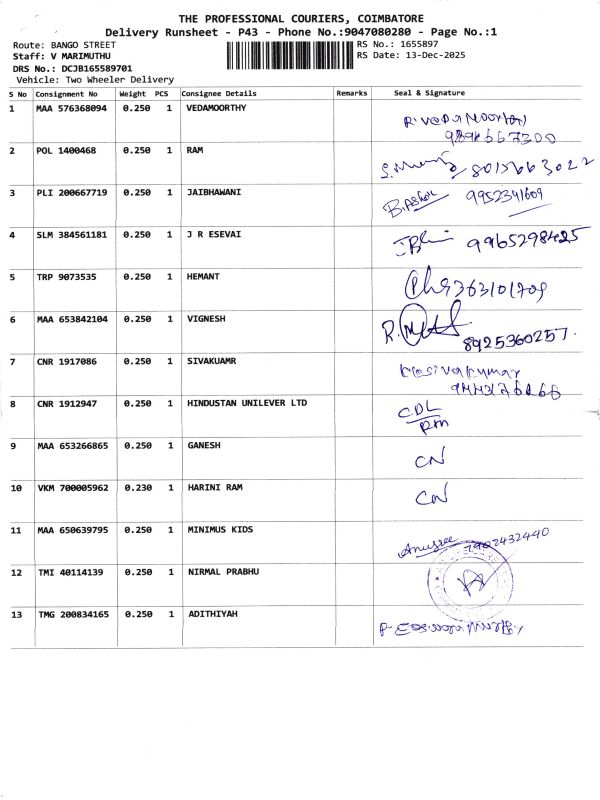 THE PROFESSIONAL COURIERS, COIMBATORE
Delivery Runsheet - P43 - Phone No.:9047080280 - Page No.:1
Route: BANGO STREET RS No.: 1655897
Staff: V MARIMUTHU RS Date: 13-Dec-2025
DRS No.: DCJB165589701
Vehicle: Two Wheeler Delivery
S No Consignment No Weight PCS Consignee Details Remarks Seal & Signature
1 MAA 576368094 0.250 1 VEDAMOORTHY
2 POL 1400468 0.250 1 RAM 8015663022
3 PLI 200667719 0.250 1 JAIBHAWANI B.Ashok 9952341609
4 SLM 384561181 0.250 1 J R ESEVAI 9965298425
5 TRP 9073535 0.250 1 HEMANT 9363101709
6 MAA 653842104 0.250 1 VIGNESH
8925360257.
7 CNR 1917086 0.250 1 SIVAKUAMR
8 CNR 1912947 0.250 1 HINDUSTAN UNILEVER LTD CDL
9 MAA 653266865 0.250 1 GANESH CN
10 VKM 700005962 0.230 1 HARINI RAM CN
11 MAA 650639795 0.250 1 MINIMUS KIDS Anusree 7902432440
12 TMI 40114139 0.250 1 NIRMAL PRABHU
13 TMG 200834165 0.250 1 ADITHIYAH